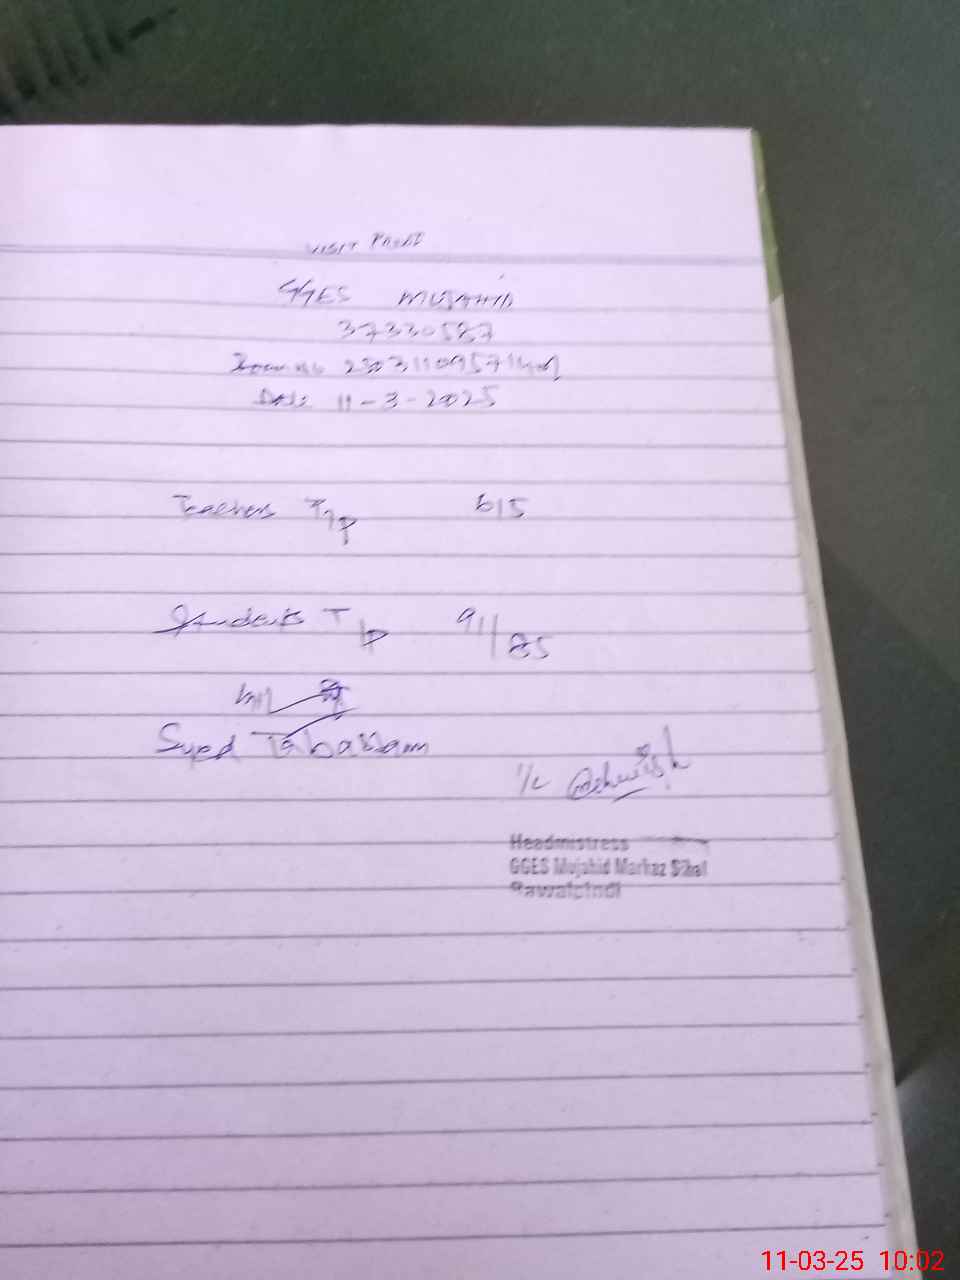 VISIT PROOF
GGES MUJAHID
37330587
Date 11-3-2025
Teachers T/P 6/5
Students T/P 91/85
Syed Tabassam
I/C
Headmistress
GGES Mujahid Markaz Sihal
Rawalpindi
11-03-25 10:02